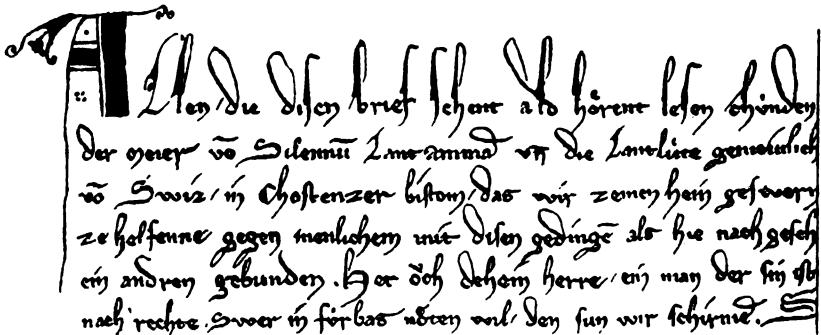 Allen die disen brief sehent ald hôrent lesen chùnden
der meier vō Silennū Lantammā vn̄ die Lantlùte gemeinlich
vō Swiz, in Chostenzer bistom, das wir zemen hein gesworn
ze helfenne, gegen menlichem mit disen gedingē als hie nach gesch
ein andren gebunden. Het ôch dehein herre, ein man der sin ist
nach rechte. Swer in fôrbas nôten wil, den sun wir schirmē.